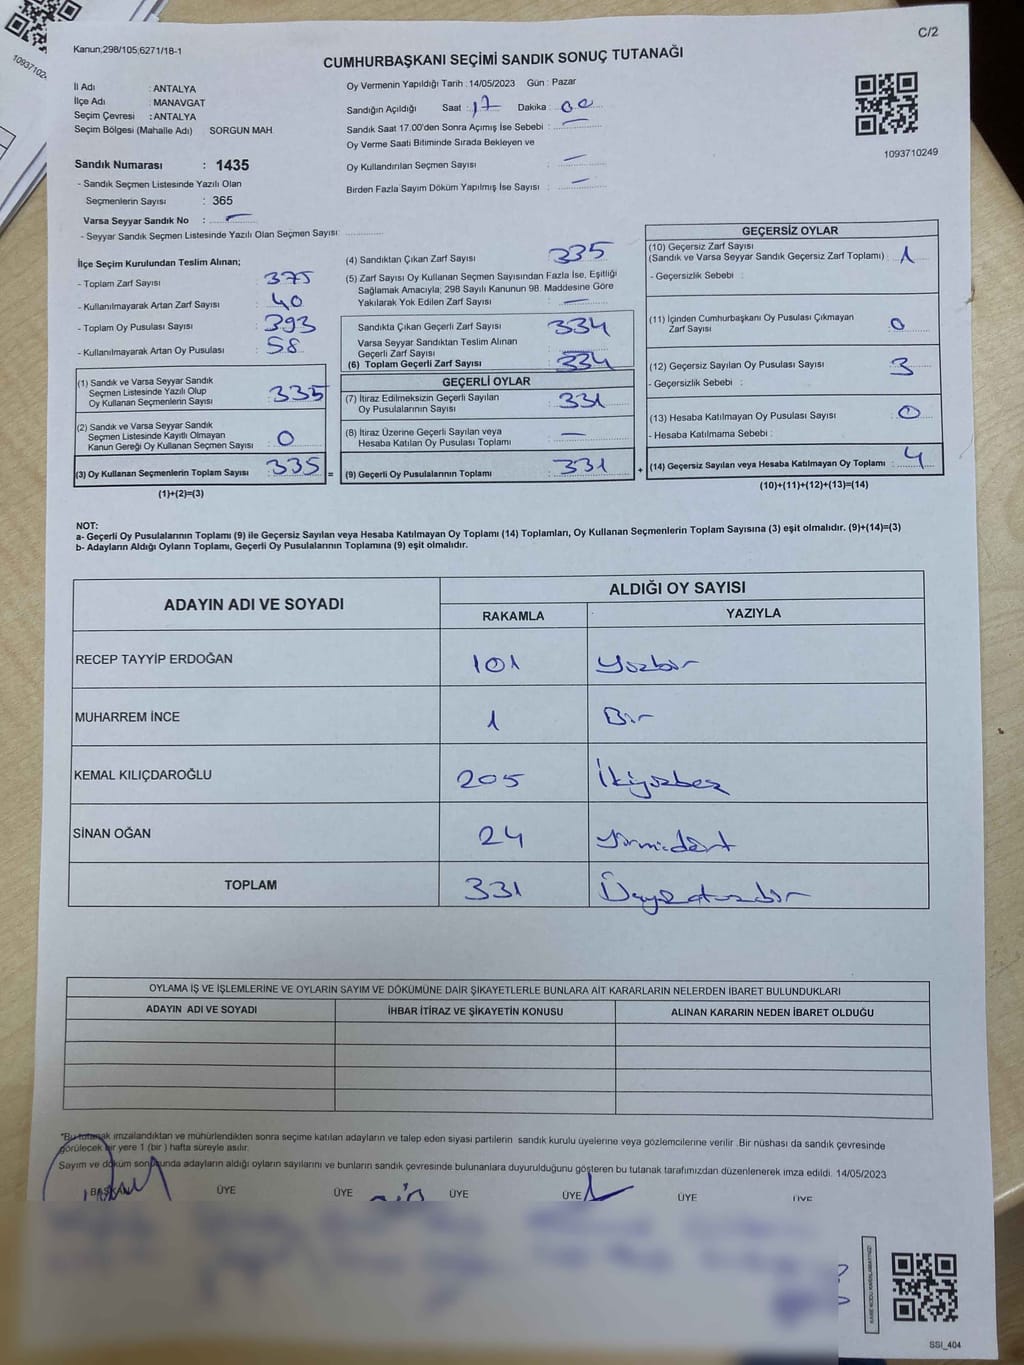 C/2
Kanun;298/105;6271/18-1
CUMHURBAŞKANI SEÇİMİ SANDIK SONUÇ TUTANAĞI
İl Adı : ANTALYA
İlçe Adı : MANAVGAT
Seçim Çevresi : ANTALYA
Seçim Bölgesi (Mahalle Adı) SORGUN MAH
Sandık Numarası : 1435
- Sandık Seçmen Listesinde Yazılı Olan
Seçmenlerin Sayısı : 365
Varsa Seyyar Sandık No : –
- Seyyar Sandık Seçmen Listesinde Yazılı Olan Seçmen Sayısı:
Oy Vermenin Yapıldığı Tarih : 14/05/2023 Gün : Pazar
Sandığın Açıldığı Saat : 17 Dakika : 00
Sandık Saat 17.00'den Sonra Açımış İse Sebebi : –
Oy Verme Saati Bitiminde Sırada Bekleyen ve
Oy Kullandırılan Seçmen Sayısı : –
Birden Fazla Sayım Döküm Yapılmış İse Sayısı : –
1093710249
İlçe Seçim Kurulundan Teslim Alınan;
- Toplam Zarf Sayısı : 375
- Kullanılmayarak Artan Zarf Sayısı : 40
- Toplam Oy Pusulası Sayısı : 393
- Kullanılmayarak Artan Oy Pusulası : 58
(1) Sandık ve Varsa Seyyar Sandık
Seçmen Listesinde Yazılı Olup
Oy Kullanan Seçmenlerin Sayısı : 335
(2) Sandık ve Varsa Seyyar Sandık
Seçmen Listesinde Kayıtlı Olmayan
Kanun Gereği Oy Kullanan Seçmen Sayısı : 0
(3) Oy Kullanan Seçmenlerin Toplam Sayısı : 335 =
(1)+(2)=(3)
(4) Sandıktan Çıkan Zarf Sayısı : 335
(5) Zarf Sayısı Oy Kullanan Seçmen Sayısından Fazla İse, Eşitliği
Sağlamak Amacıyla; 298 Sayılı Kanunun 98. Maddesine Göre
Yakılarak Yok Edilen Zarf Sayısı : –
Sandıkta Çıkan Geçerli Zarf Sayısı : 334
Varsa Seyyar Sandıktan Teslim Alınan
Geçerli Zarf Sayısı
(6) Toplam Geçerli Zarf Sayısı : 334
GEÇERLİ OYLAR
(7) İtiraz Edilmeksizin Geçerli Sayılan
Oy Pusulalarının Sayısı : 331
(8) İtiraz Üzerine Geçerli Sayılan veya
Hesaba Katılan Oy Pusulası Toplamı : –
(9) Geçerli Oy Pusulalarının Toplamı : 331 +
GEÇERSİZ OYLAR
(10) Geçersiz Zarf Sayısı
(Sandık ve Varsa Seyyar Sandık Geçersiz Zarf Toplamı) : 1
- Geçersizlik Sebebi :
(11) İçinden Cumhurbaşkanı Oy Pusulası Çıkmayan
Zarf Sayısı : 0
(12) Geçersiz Sayılan Oy Pusulası Sayısı : 3
- Geçersizlik Sebebi :
(13) Hesaba Katılmayan Oy Pusulası Sayısı : 0
- Hesaba Katılmama Sebebi :
(14) Geçersiz Sayılan veya Hesaba Katılmayan Oy Toplamı : 4
(10)+(11)+(12)+(13)=(14)
NOT:
a- Geçerli Oy Pusulalarının Toplamı (9) ile Geçersiz Sayılan veya Hesaba Katılmayan Oy Toplamı (14) Toplamları, Oy Kullanan Seçmenlerin Toplam Sayısına (3) eşit olmalıdır. (9)+(14)=(3)
b- Adayların Aldığı Oyların Toplamı, Geçerli Oy Pusulalarının Toplamına (9) eşit olmalıdır.
ADAYIN ADI VE SOYADI
ALDIĞI OY SAYISI
RAKAMLA YAZIYLA
RECEP TAYYİP ERDOĞAN 101 Yüzbir
MUHARREM İNCE 1 Bir
KEMAL KILIÇDAROĞLU 205 İkiyüzbeş
SİNAN OĞAN 24 Yirmidört
TOPLAM 331 Üçyüzotuzbir
OYLAMA İŞ VE İŞLEMLERİNE VE OYLARIN SAYIM VE DÖKÜMÜNE DAİR ŞİKAYETLERLE BUNLARA AİT KARARLARIN NELERDEN İBARET BULUNDUKLARI
ADAYIN ADI VE SOYADI İHBAR İTİRAZ VE ŞİKAYETİN KONUSU ALINAN KARARIN NEDEN İBARET OLDUĞU
*Bu tutanak imzalandıktan ve mühürlendikten sonra seçime katılan adayların ve talep eden siyasi partilerin sandık kurulu üyelerine veya gözlemcilerine verilir .Bir nüshası da sandık çevresinde
görülecek bir yere 1 (bir ) hafta süreyle asılır.
Sayım ve döküm sonucunda adayların aldığı oyların sayılarını ve bunların sandık çevresinde bulunanlara duyurulduğunu gösteren bu tutanak tarafımızdan düzenlenerek imza edildi. 14/05/2023
BAŞKAN ÜYE ÜYE ÜYE ÜYE ÜYE ÜYE
SSI_404